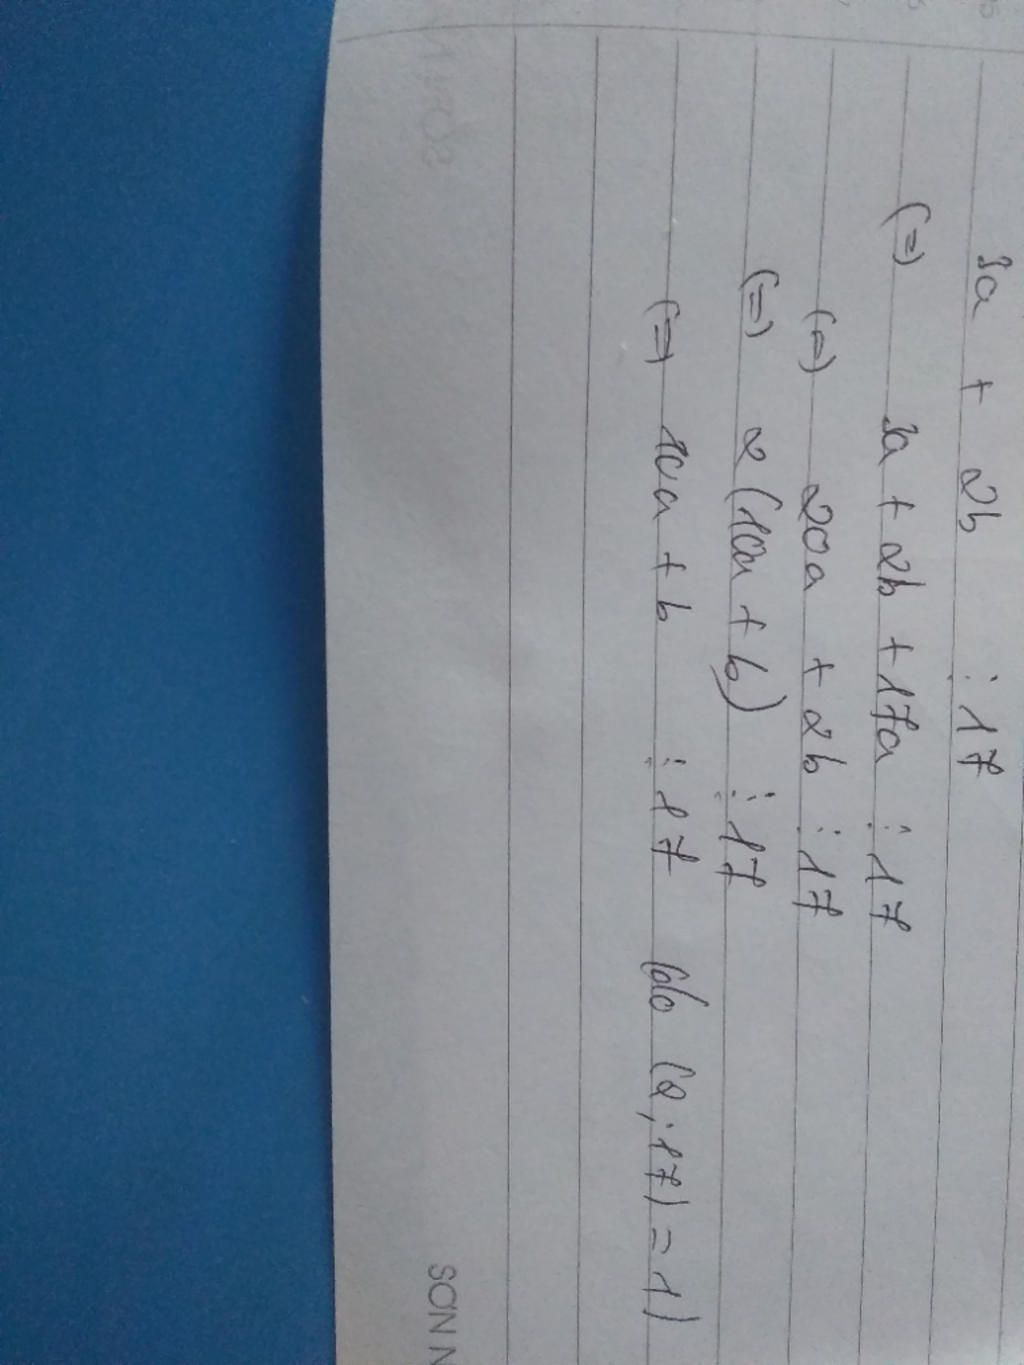 3a + 2b ⋮ 17
(=) 3a + 2b + 17a ⋮ 17
(=) 20a + 2b ⋮ 17
(=) 2(10a + b) ⋮ 17
(=) 10a + b ⋮ 17 (do (2, 17) = 1)
SƠN